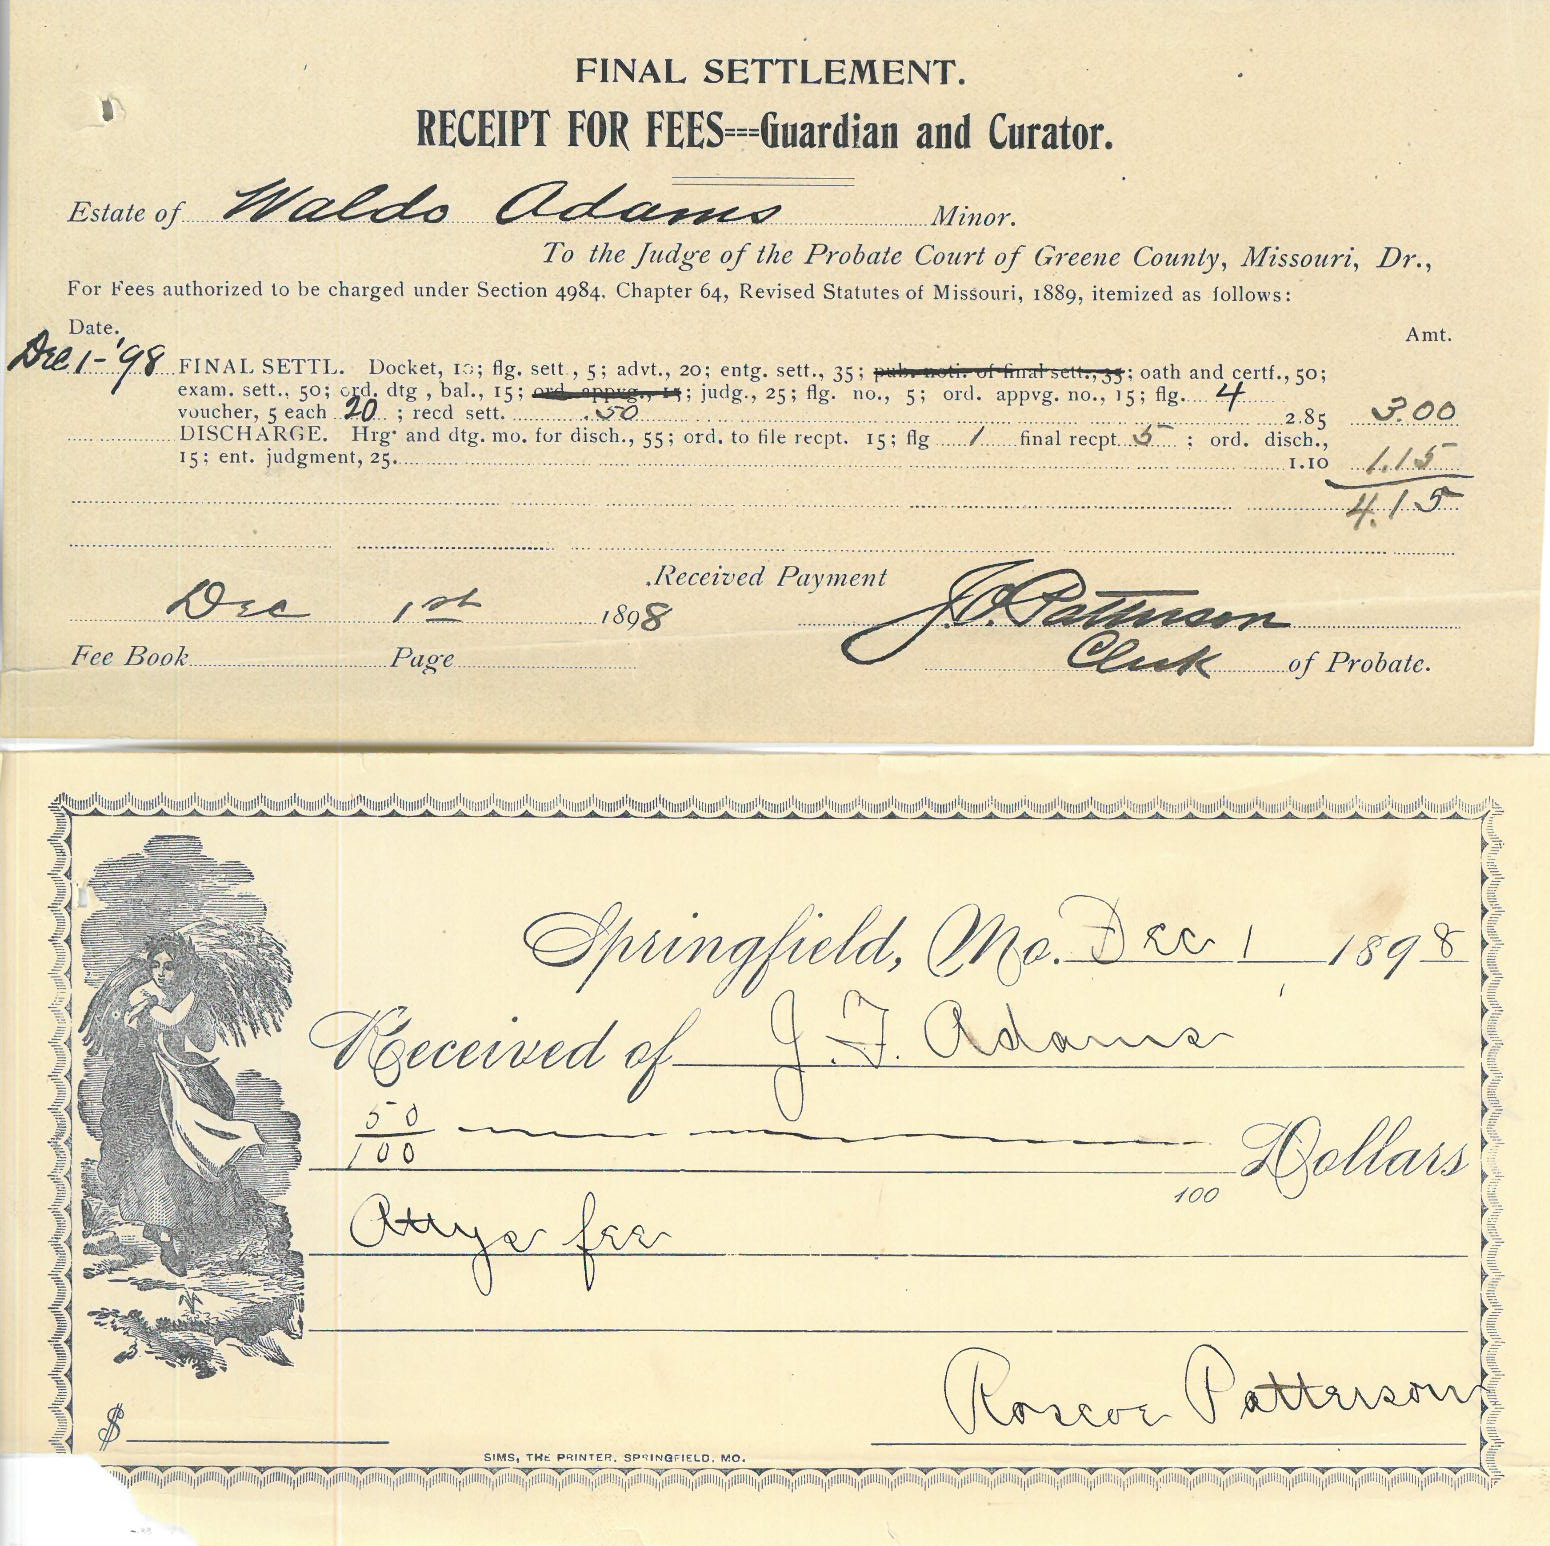 FINAL SETTLEMENT.
RECEIPT FOR FEES===Guardian and Curator.
Estate of Waldo Adams Minor.
To the Judge of the Probate Court of Greene County, Missouri, Dr.,
For Fees authorized to be charged under Section 4984. Chapter 64, Revised Statutes of Missouri, 1889, itemized as follows:
Date. Amt.
Dec 1-'98 FINAL SETTL. Docket, 10; flg. sett., 5; advt., 20; entg. sett., 35; pub. noti. of final sett., 35; oath and certf., 50;
exam. sett., 50; ord. dtg, bal., 15; ord. appvg., 15; judg., 25; flg. no., 5; ord. appvg. no., 15; flg. 4
voucher, 5 each 20; recd sett. .50 2.85 3.00
DISCHARGE. Hrg. and dtg. mo. for disch., 55; ord. to file recpt. 15; flg 1 final recpt 5; ord. disch.,
15; ent. judgment, 25. 1.10 1.15
4.15
Received Payment
Dec 1st 1898 J.O. Patterson
Fee Book Page Clerk of Probate.
Springfield, Mo. Dec 1, 1898
Received of J. F. Adams
50/100 Dollars
100
Attys fee
Roscoe Patterson
$
SIMS, THE PRINTER, SPRINGFIELD, MO.